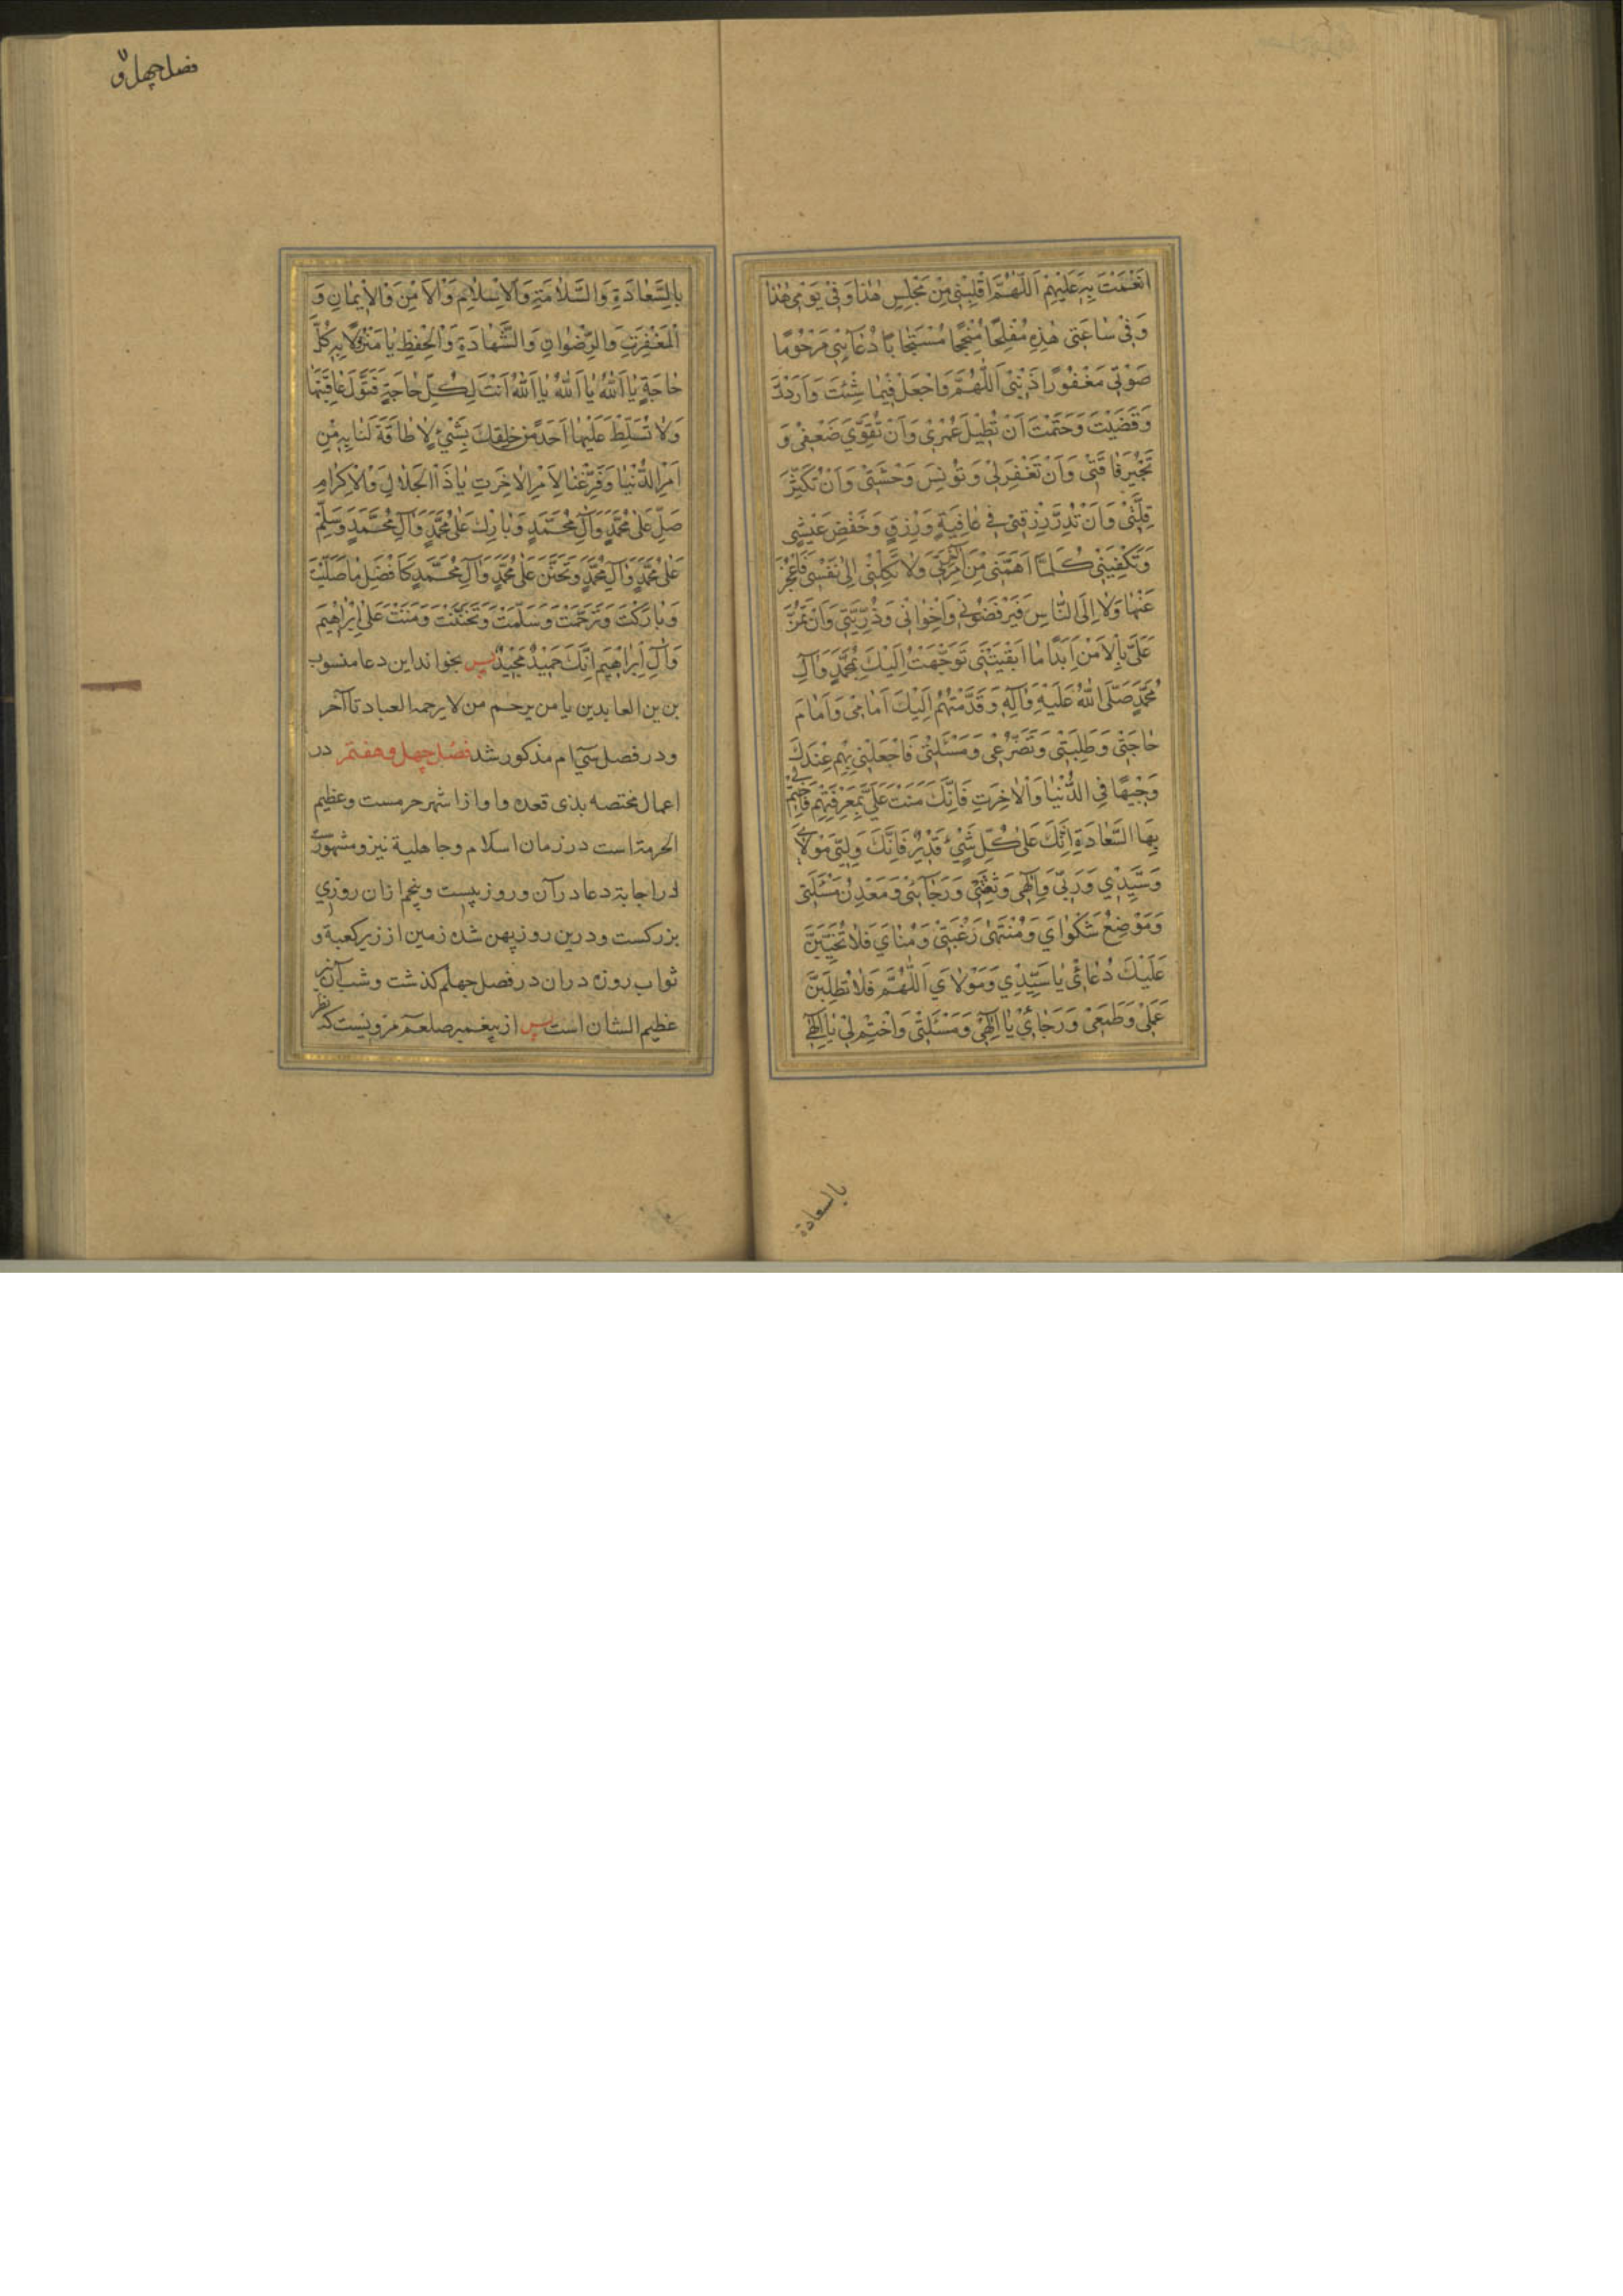 اَنْعَمْتَ بِهِ عَلَيْهِمْ اَللّٰهُمَّ اقْلِبْنِي مِنْ مَجْلِسِي هٰذَا وَفِي يَوْمِي هٰذَا
وَفِي سَاعَتِي هٰذِهِ مُفْلِحًا مُنْجِحًا مُسْتَجَابًا دُعَائِي مَرْحُومًا
صَوْتِي مَغْفُورًا ذَنْبِي اَللّٰهُمَّ وَاجْعَلْ فِيمَا شِئْتَ وَاَرَدْتَ
وَقَضَيْتَ وَحَتَمْتَ اَنْ تُطِيلَ عُمْرِي وَاَنْ تُقَوِّيَ ضَعْفِي وَ
تَجْبُرَ فَاقَتِي وَاَنْ تَغْفِرَ لِي وَتُونِسَ وَحْشَتِي وَاَنْ تُكَثِّرَ
قِلَّتِي وَاَنْ تُدِرَّ رِزْقِي فِي عَافِيَةٍ وَرِزْقٍ وَخَفْضِ عَيْشٍ
وَتَكْفِيَنِي كُلَّمَا اَهَمَّنِي مِنْ اَمْرِ وَلَا تَكِلْنِي اِلٰى نَفْسِي فَاَعْجِزَ
عَنْهَا وَلَا اِلَى النَّاسِ فَيَرْفَضُونِي وَاِخْوَانِي وَذُرِّيَّتِي وَاَنْ تَمُنَّ
عَلَيَّ بِالْاَمْنِ اَبَدًا مَا اَبْقَيْتَنِي تَوَجَّهْتُ اِلَيْكَ بِمُحَمَّدٍ وَآلِ
مُحَمَّدٍ صَلَّى اللّٰهُ عَلَيْهِ وَآلِهِ وَقَدَّمْتُهُمْ اِلَيْكَ اَمَامِي وَاَمَامَ
حَاجَتِي وَطَلِبَتِي وَتَضَرُّعِي وَمَسْئَلَتِي فَاجْعَلْنِي بِهِمْ عِنْدَكَ
وَجِيهًا فِي الدُّنْيَا وَالْآخِرَةِ فَاِنَّكَ مَنَنْتَ عَلَيَّ بِمَعْرِفَتِهِمْ فَاخْتِمْ لِي
بِهَا السَّعَادَةِ اِنَّكَ عَلٰى كُلِّ شَيْءٍ قَدِيرٌ فَاِنَّكَ وَلِيِّي مَوْلَايَ
وَسَيِّدِي وَرَبِّي وَاِلٰهِي وَثِقَتِي وَرَجَائِي وَمَعْدِنُ مَسْئَلَتِي
وَمَوْضِعُ شَكْوَايَ وَمُنْتَهٰى رَغْبَتِي وَمُنَايَ فَلَا تُخَيِّبَنَّ
عَلَيْكَ دُعَائِي يَا سَيِّدِي وَمَوْلَايَ اَللّٰهُمَّ فَلَا تُطِلَبَنَّ
عَمَلِي وَطَمَعِي وَرَجَائِي يَا اِلٰهِي وَمَسْئَلَتِي وَاخْتِمْ لِي يَا اِلٰهِي
بالسعادة
فصل چهل و
بِالسَّعَادَةِ وَالسَّلَامَةِ وَالْاِسْلَامِ وَالْاَمْنِ وَالْاِيمَانِ وَ
الْمَغْفِرَةِ وَالرِّضْوَانِ وَالشَّهَادَةِ وَالْحِفْظِ يَا مَنْزُولًا بِهِ كُلُّ
حَاجَةٍ يَا اَللّٰهُ يَا اَللّٰهُ يَا اَللّٰهُ اَنْتَ لِكُلِّ حَاجَةٍ فَتَوَلَّ عَاقِبَتَهَا
وَلَا تُسَلِّطْ عَلَيْهَا اَحَدًا مِنْ خَلْقِكَ بِشَيْءٍ لَا طَاقَةَ لَنَا بِهِ مِنْ
اَمْرِ الدُّنْيَا وَفَرِّغْنَا لِاَمْرِ الْآخِرَةِ يَا ذَا الْجَلَالِ وَالْاِكْرَامِ
صَلِّ عَلٰى مُحَمَّدٍ وَآلِ مُحَمَّدٍ وَبَارِكْ عَلٰى مُحَمَّدٍ وَآلِ مُحَمَّدٍ وَسَلِّمْ
عَلٰى مُحَمَّدٍ وَآلِ مُحَمَّدٍ وَتَحَنَّنْ عَلٰى مُحَمَّدٍ وَآلِ مُحَمَّدٍ كَاَفْضَلِ مَا صَلَّيْتَ
وَبَارَكْتَ وَتَرَحَّمْتَ وَسَلَّمْتَ وَتَحَنَّنْتَ وَمَنَنْتَ عَلٰى اِبْرَاهِيمَ
وَآلِ اِبْرَاهِيمَ اِنَّكَ حَمِيدٌ مَجِيدٌ پس بخواند این دعا منسوب
بزین العابدین یا من یرحم من لا یرحمه العباد تا آخر
و در فصل سی ام مذکور شد فصل چهل و هفتم در
اعمال مختصه بذی قعده و او از اشهر حرمست و عظیم
الحرمة است در زمان اسلام و جاهلیة نیز و مشهور
در اجابة دعا در آن و روز بیست و پنجم ازان روزی
بزرکست و درین روز پهن شده زمین از زیر کعبة و
ثواب روزه دران در فصل چهلم کذشت و شب آن نیز
عظیم الشان است پس از پیغمبر صلعم مرویست که نظر